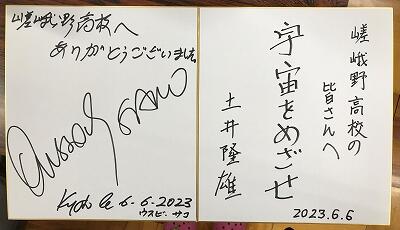 嵯峨野高校へ
ありがとうございました
Oussouby SAKO
Kyoto 6-6-2023
ウスビ・サコ
嵯峨野高校の
皆さんへ
宇宙をめざせ
土井隆雄
2023.6.6